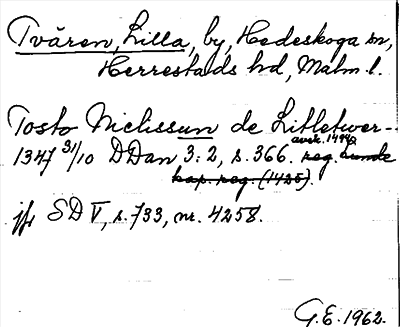 Tvären, Lilla, by, Hedeskoga sn,
Herrestads hd, Malm. l.
Tosto Nichissun de Litletwer-
avskr. 1494
1347 31/10 DDan 3:2, s. 366. reg. Lunde
kap. reg. (1425).
jfr SD V, s. 733, nr. 4258.
G.E. 1962.